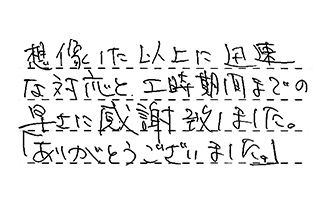 想像した以上に迅速
な対応と工時期間までの
早さに感謝致しました。
「ありがとうございました。」